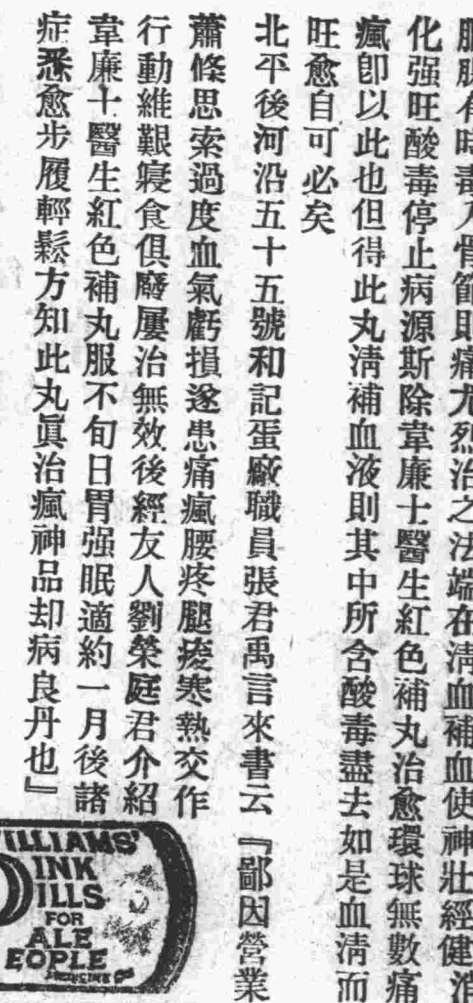 有時毒入骨節則痛尤烈治之法端在清血補血使神壯經健消
化强旺酸毒停止病源斯除韋廉士醫生紅色補丸治愈環球無數痛
瘋卽以此也但得此丸淸補血液則其中所含酸毒盡去如是血淸而
旺愈自可必矣
北平後河沿五十五號和記蛋廠職員張君禹言來書云『鄙因營業
蕭條思索過度血氣虧損遂患痛瘋腰疼腿痠寒熱交作
行動維艱寢食俱廢屢治無效後經友人劉榮庭君介紹
韋廉士醫生紅色補丸服不旬日胃强眠適約一月後諸
症悉愈步履輕鬆方知此丸眞治瘋神品却病良丹也』
ILLIAMS'
INK
ILLS
FOR
ALE
EOPLE